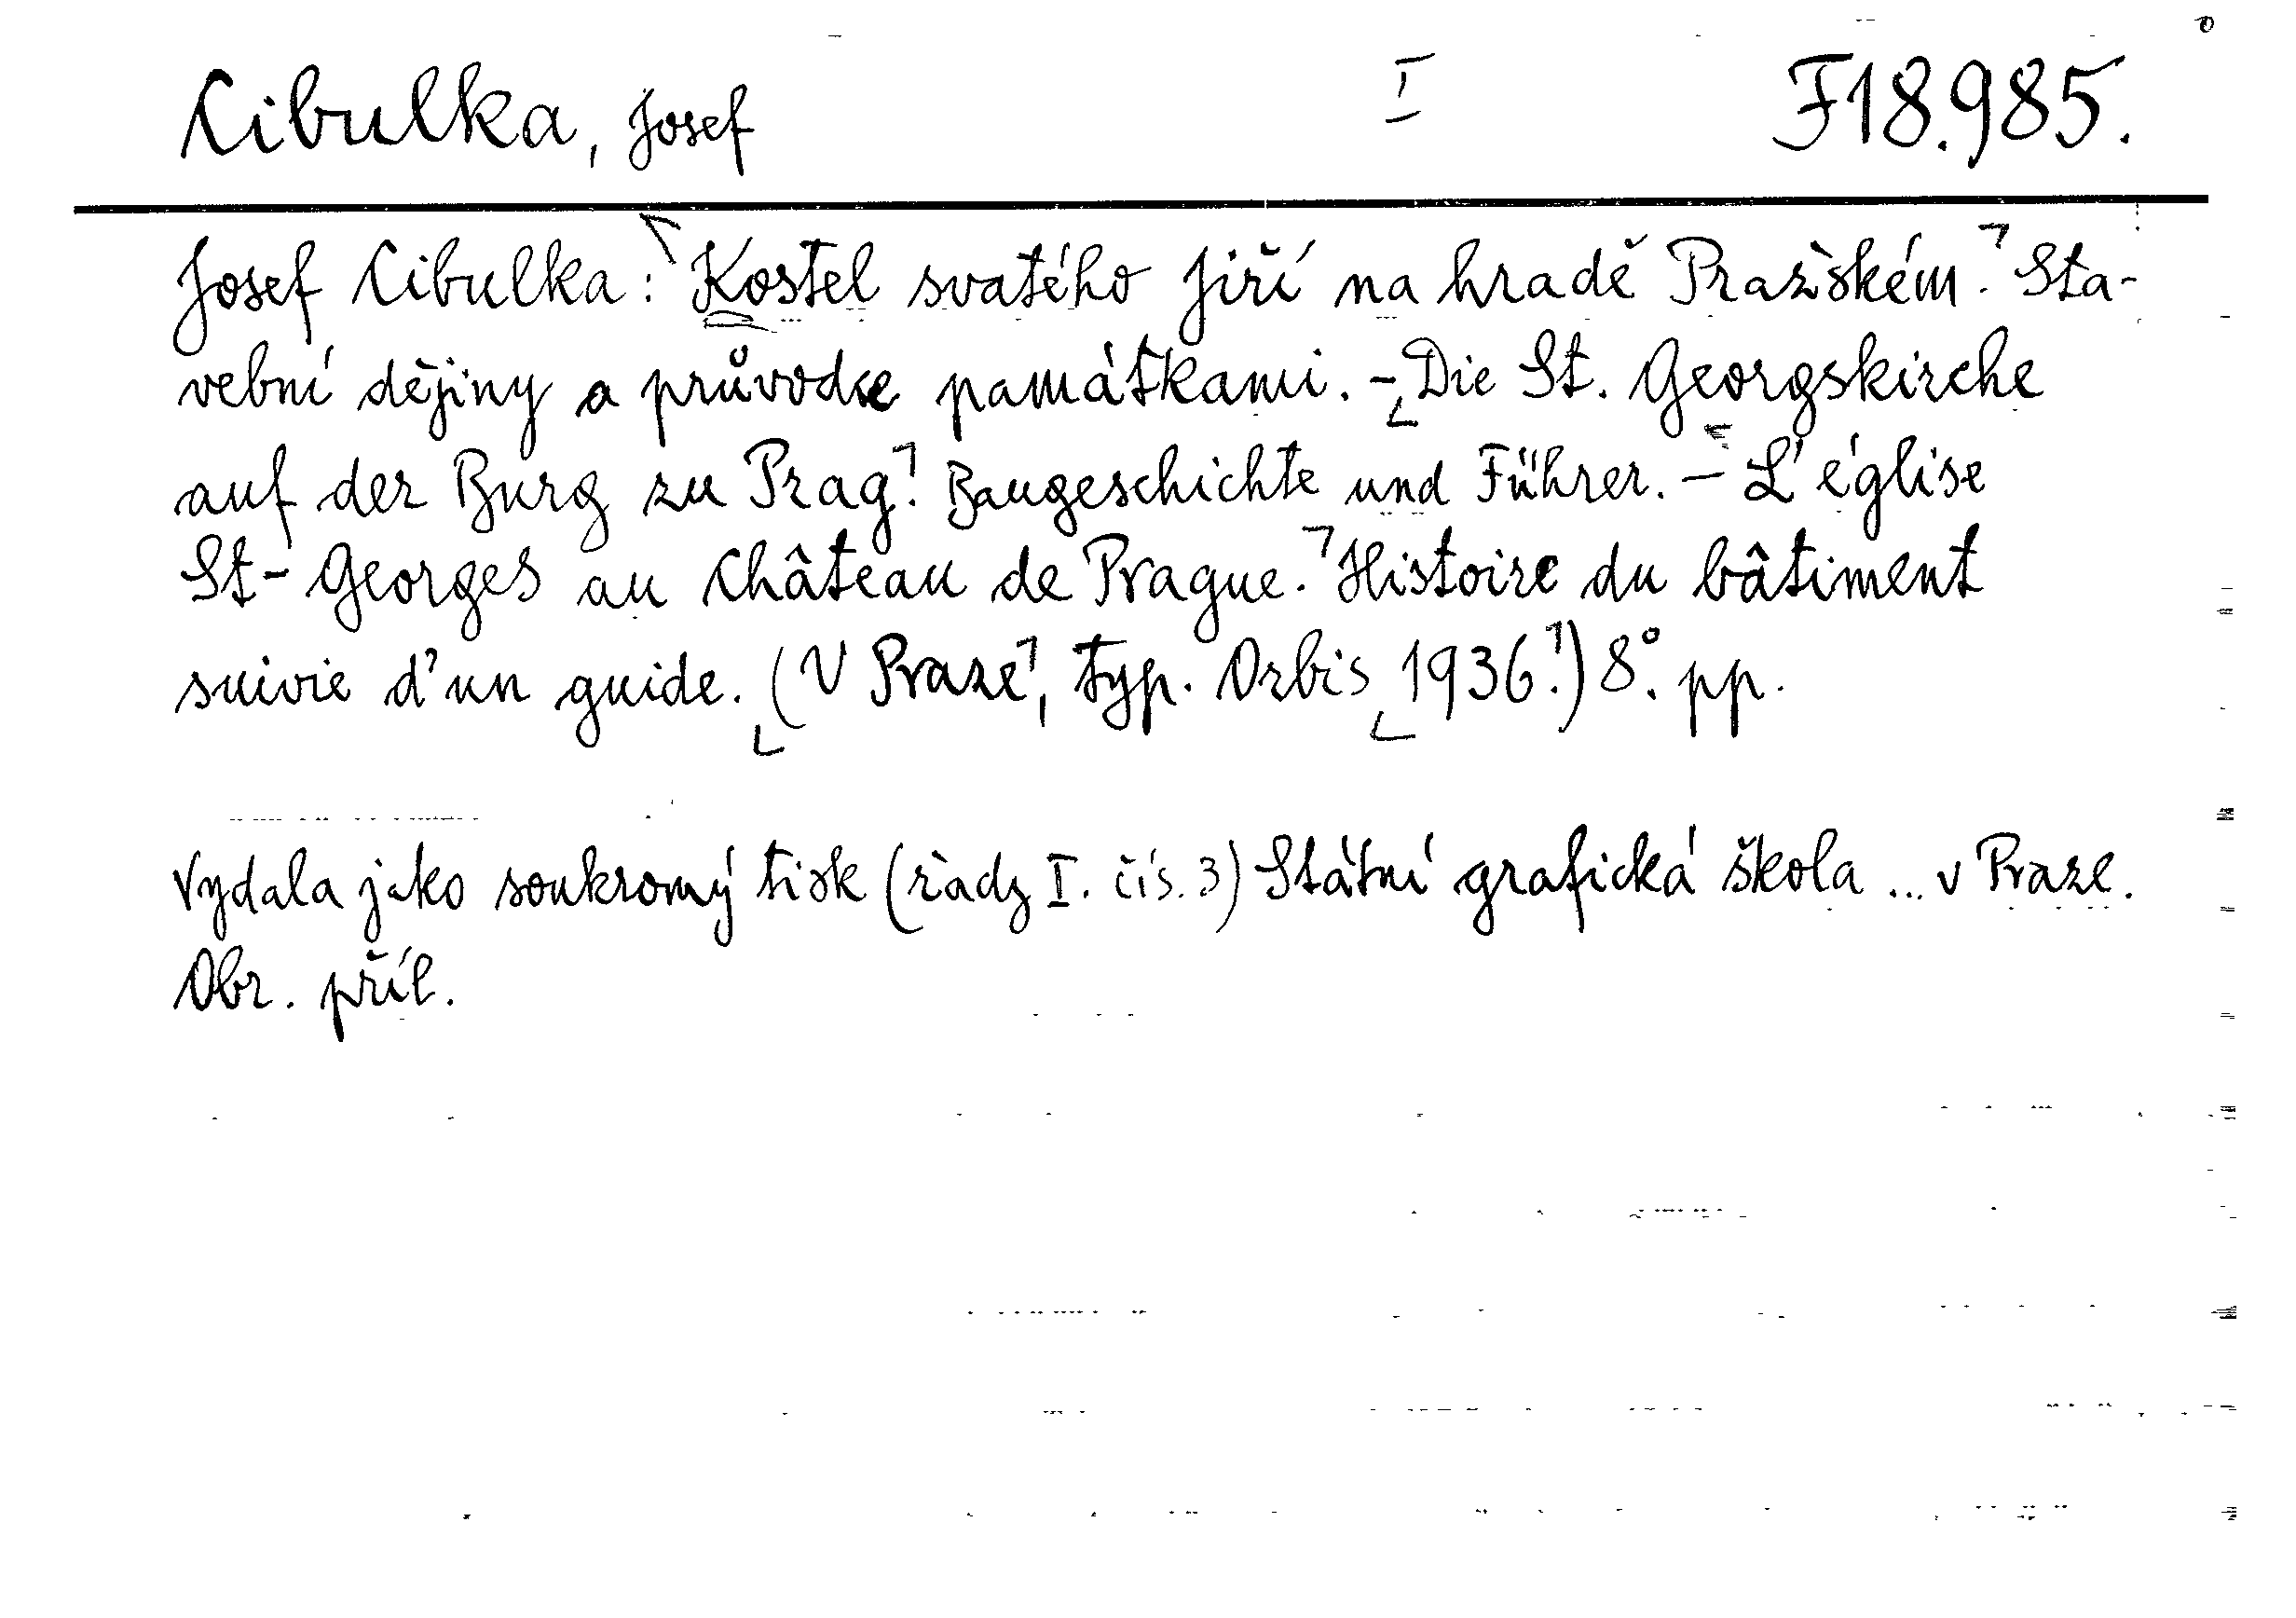 Cibulka, Josef I F18.985.
Josef Cibulka: Kostel svatého Jiří na hradě Pražském. Sta-
vební dějiny a průvodce památkami. - Die St. Georgskirche
auf der Burg zu Prag. Baugeschichte und Führer. - L'église
St-Georges au Château de Prague. Histoire du bâtiment
suivie d'un guide. (V Praze, typ. Orbis 1936.) 8°. pp.
Vydala jako soukromý tisk (řady I. čís. 3) Státní grafická škola ... v Praze.
Obr. příl.